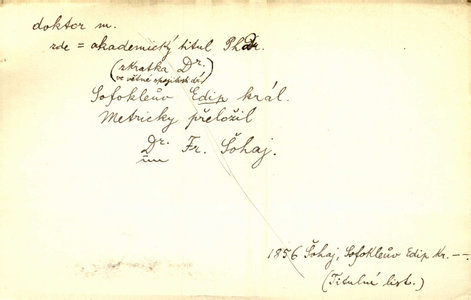 doktor m.
zde = akademický titul PhDr.
(zkratka Dr.
ve větné spojitosti)
Sofokleův Edip král.
Metricky přeložil
Dr. Fr. Šohaj.
1856 Šohaj, Sofokleův Edip Kr. --
(Titulní list.)